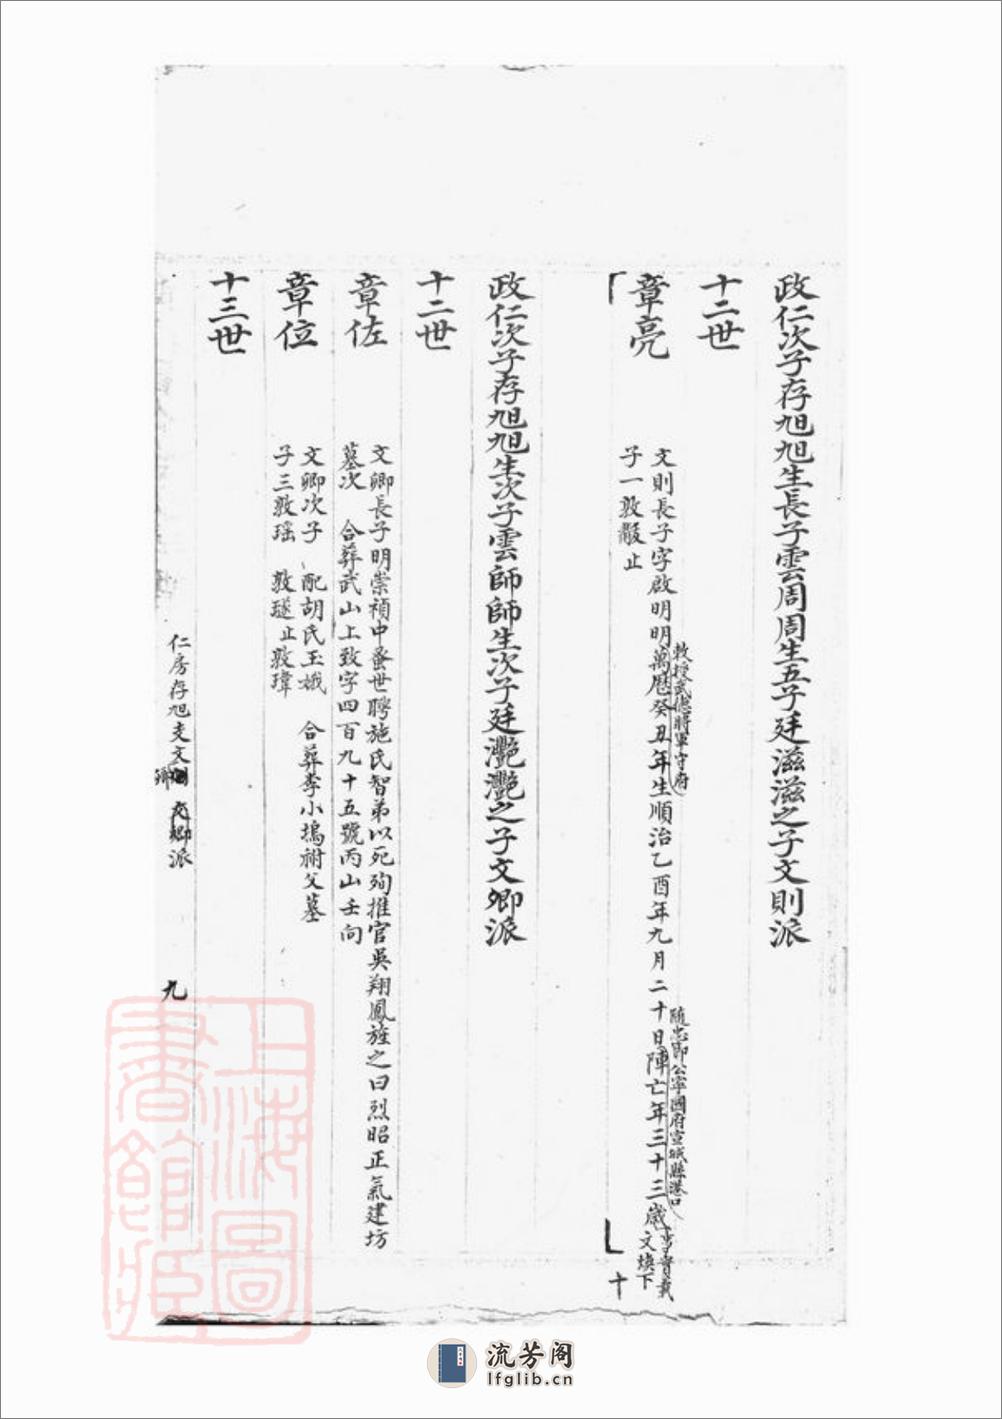 政仁次子存旭旭生長子雲周周生五子廷滋滋之子文則派
十二世
章亮
文則長子字啟明明萬厯癸丑年生順治乙酉年九月二十日陣亡年三十三歲
敕授武德將軍守府
隨忠節公寧國府宣城縣港口
事實載
文煥下
子一敦㲄止
十
政仁次子存旭旭生次子雲師師生次子廷灔灔之子文卿派
十二世
章佐
文卿長子明崇禎中蚤世聘施氏智弟以死殉推官吳翔鳳旌之曰烈昭正氣建坊
墓次 合葬武山上致字四百九十五號丙山壬向
章位
文卿次子 配胡氏玉娥 合葬李小塢祔父墓
子三敦瑶 敦璲止敦瑋
十三世
仁房存旭支文 卿 文卿派
九
上海圖書館藏
流芳阁
lfglib.cn